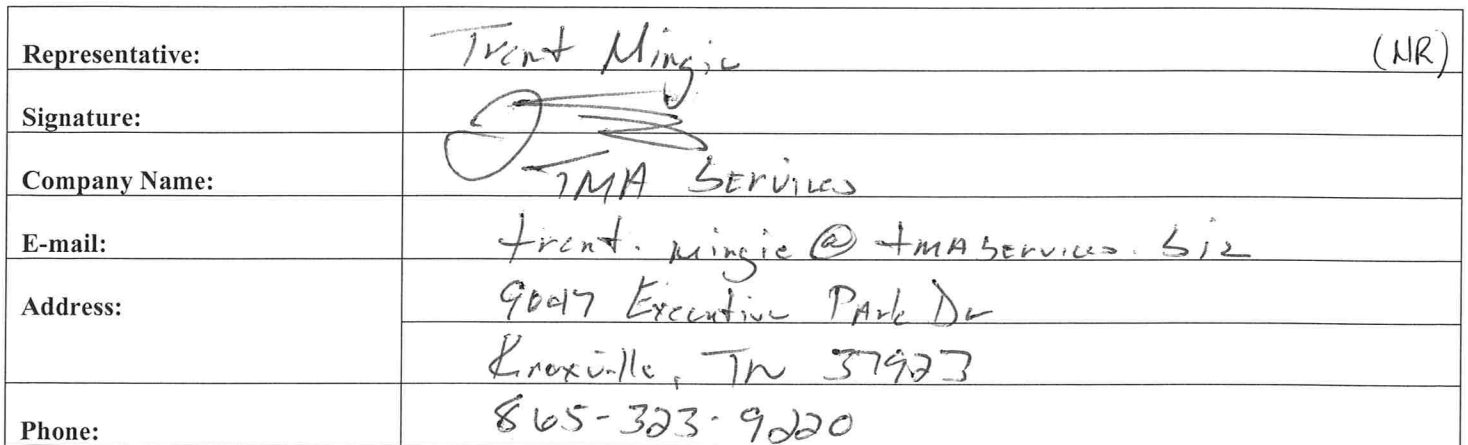 Representative: Trent Mingie (NR)
Signature:
Company Name: TMA Services
E-mail: trent.mingie@tmaservices.biz
Address: 9047 Executive Park Dr
Knoxville, TN 37923
Phone: 865-323-9220